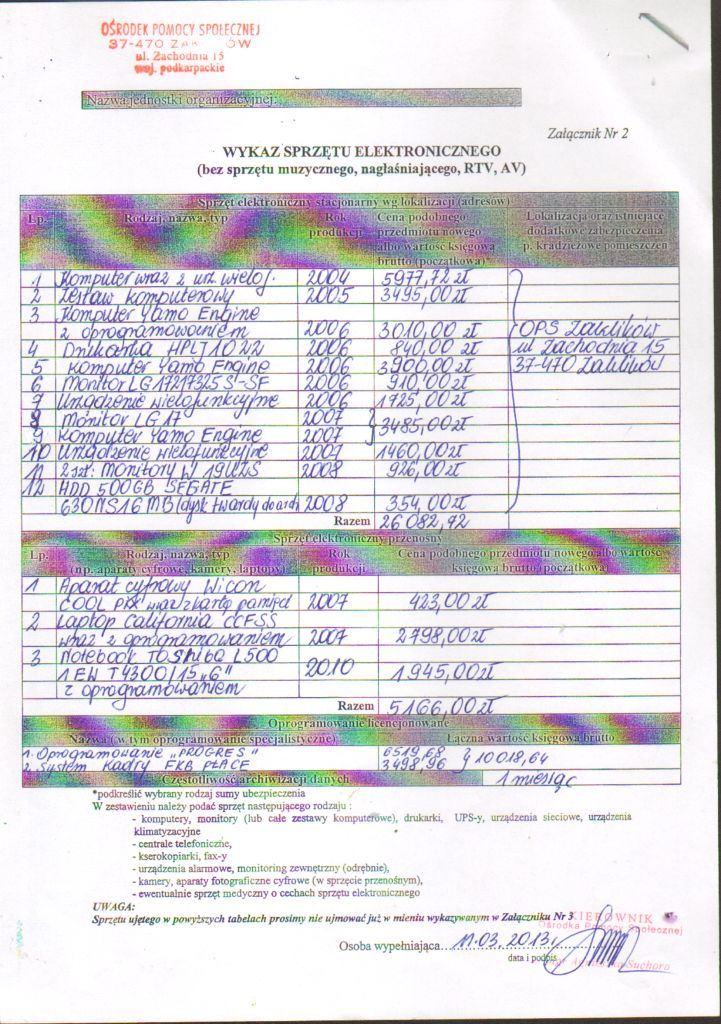 OŚRODEK POMOCY SPOŁECZNEJ
37-470
ul. Zachodnia 15
woj. podkarpackie
Nazwa jednostki organizacyjnej:
Załącznik Nr 2
WYKAZ SPRZĘTU ELEKTRONICZNEGO
(bez sprzętu muzycznego, nagłaśniającego, RTV, AV)
Sprzęt elektroniczny stacjonarny wg lokalizacji (adresów)
Lp. Rodzaj, nazwa, typ Rok produkcji Cena podobnego przedmiotu nowego albo wartość księgowa brutto (początkowa) Lokalizacja oraz istniejące dodatkowe zabezpieczenia p. kradzieżowe pomieszczeń
1 Komputer wraz z urz. wielof. 2004 5977,72 zł
2 Zestaw komputerowy 2005 3495,00 zł
3 Komputer Yamo Engine
z oprogramowaniem 2006 3010,00 zł OPS Zaklików
4 Drukarka HPLJ 1022 2006 840,00 zł ul Zachodnia 15
5 Komputer Yamo Engine 2006 3900,00 zł 37-470 Zaklików
6 Monitor LG 17217325 S-SF 2006 910,00 zł
7 Urządzenie wielofunkcyjne 2006 1725,00 zł
8 Monitor LG 17 2007
9 Komputer Yamo Engine 2007 3485,00 zł
10 Urządzenie wielofunkcyjne 2007 1460,00 zł
11 2 szt. Monitory W 19 2008 926,00 zł
12 HDD 500GB SEGATE
630NS16 MB (dysk twardy do arch 2008 354,00 zł
Razem 26 082,72
Sprzęt elektroniczny przenośny
Lp. Rodzaj, nazwa, typ (np. aparaty cyfrowe, kamery, laptopy) Rok produkcji Cena podobnego przedmiotu nowego albo wartość księgowa brutto (początkowa)
1 Aparat cyfrowy Nicon
COOL PIX wraz z kartą pamięci 2007 423,00 zł
2 Laptop California CCFSS
wraz z oprogramowaniem 2007 2798,00 zł
3 Notebook Toshiba L500
1EW T4300/15,,6" 2010 1945,00 zł
z oprogramowaniem
Razem 5166,00 zł
Oprogramowanie licencjonowane
Nazwa (w tym oprogramowanie specjalistyczne) Łączna wartość księgowa brutto
1. Oprogramowanie „PROGRES" 6519,68
2. System Kadry FKB PŁACE 3498,96 } 10018,64
Częstotliwość archiwizacji danych 1 miesiąc
*podkreślić wybrany rodzaj sumy ubezpieczenia
W zestawieniu należy podać sprzęt następującego rodzaju :
- komputery, monitory (lub całe zestawy komputerowe), drukarki, UPS-y, urządzenia sieciowe, urządzenia
klimatyzacyjne
- centrale telefoniczne,
- kserokopiarki, fax-y
- urządzenia alarmowe, monitoring zewnętrzny (odrębnie),
- kamery, aparaty fotograficzne cyfrowe (w sprzęcie przenośnym),
- ewentualnie sprzęt medyczny o cechach sprzętu elektronicznego
UWAGA:
Sprzętu ujętego w powyższych tabelach prosimy nie ujmować już w mieniu wykazywanym w Załączniku Nr 3
KIEROWNIK
Ośrodka Pomocy Społecznej
Osoba wypełniająca 11.03.2013r
data i podpis
Suchora